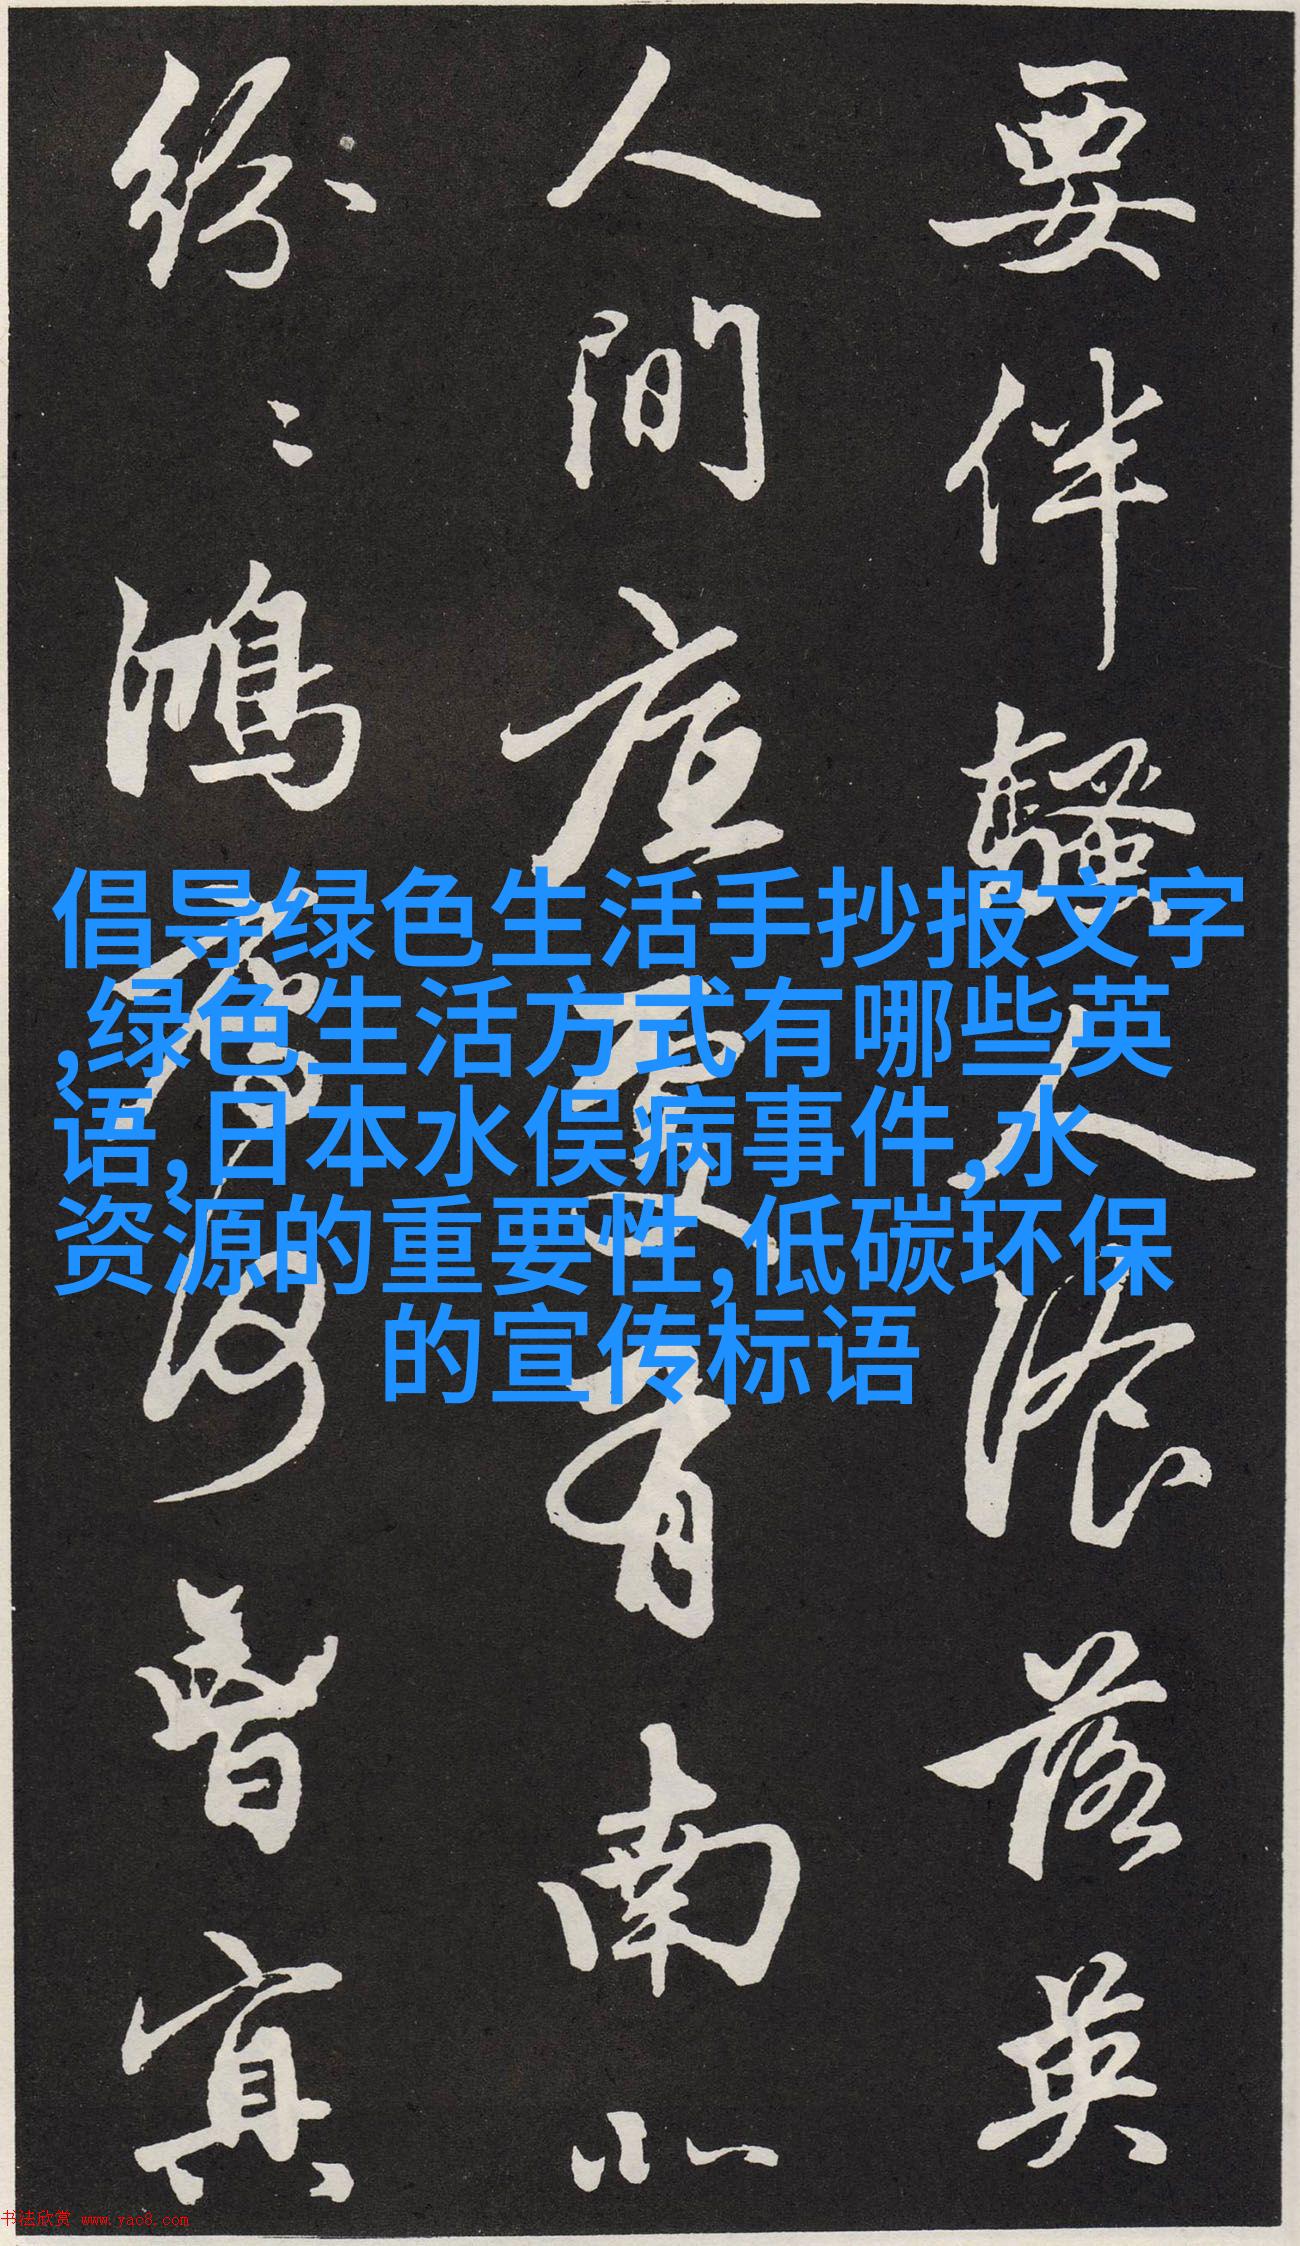 要伴騷人湌落英
人間底處有南北
紛〻鴻鴈何曾冥
倡导绿色生活手抄报文字
,绿色生活方式有哪些英
语,日本水俣病事件,水
资源的重要性,低碳环保
的宣传标语
书法欣赏 www.yac8.com